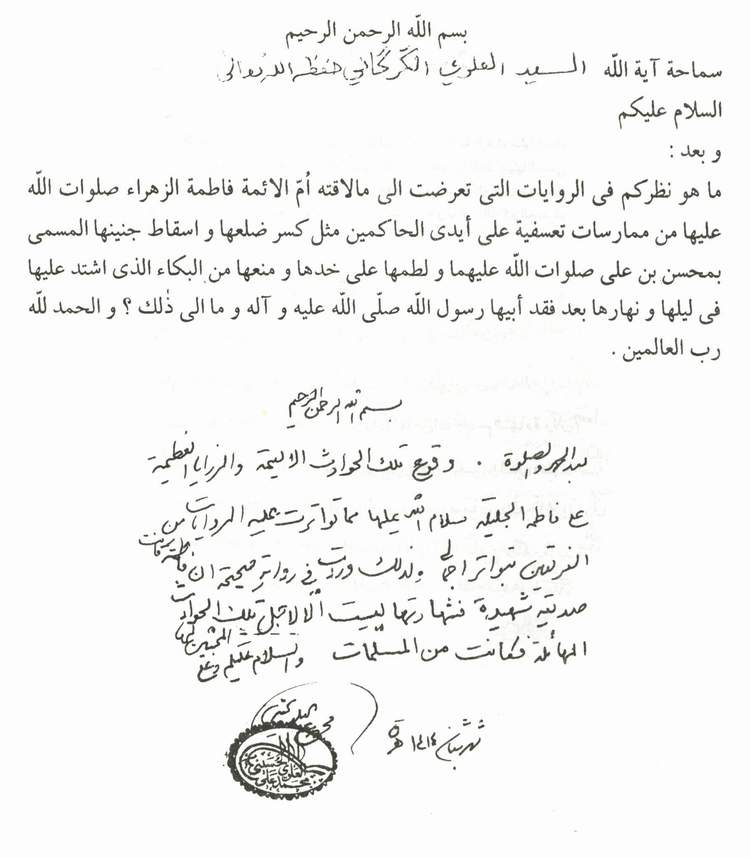 بسم اللّه الرحمن الرحيم
سماحة آية اللّه السيد العلوي الگرگاني حفظه
السلام عليكم
و بعد :
ما هو نظركم فى الروايات التى تعرضت الى مالاقته اُمّ الائمة فاطمة الزهراء صلوات اللّه
عليها من ممارسات تعسفية على أيدى الحاكمين مثل كسر ضلعها و اسقاط جنينها المسمى
بمحسن بن على صلوات اللّه عليهما و لطمها على خدها و منعها من البكاء الذى اشتد عليها
فى ليلها و نهارها بعد فقد أبيها رسول اللّه صلّى اللّه عليه و آله و ما الى ذٰلك ؟ و الحمد للّه
رب العالمين .
بسم الله الرحمن الرحيم
بعد الحمد والصلوة . وقوع تلك الحوادث الاليمة والرزايا العظيمة
على فاطمة الجليلة سلام الله عليها مما تواترت عليه الروايات من
الفريقين بتواتر اجمالى ولذلك وردت في رواية صحيحة ان فاطمة كانت
صديقة شهيدة فشهادتها ليست الا لاجل تلك الحوادث
الهائلة فكانت من المسلمات والسلام عليكم وعلى
١٤١٤